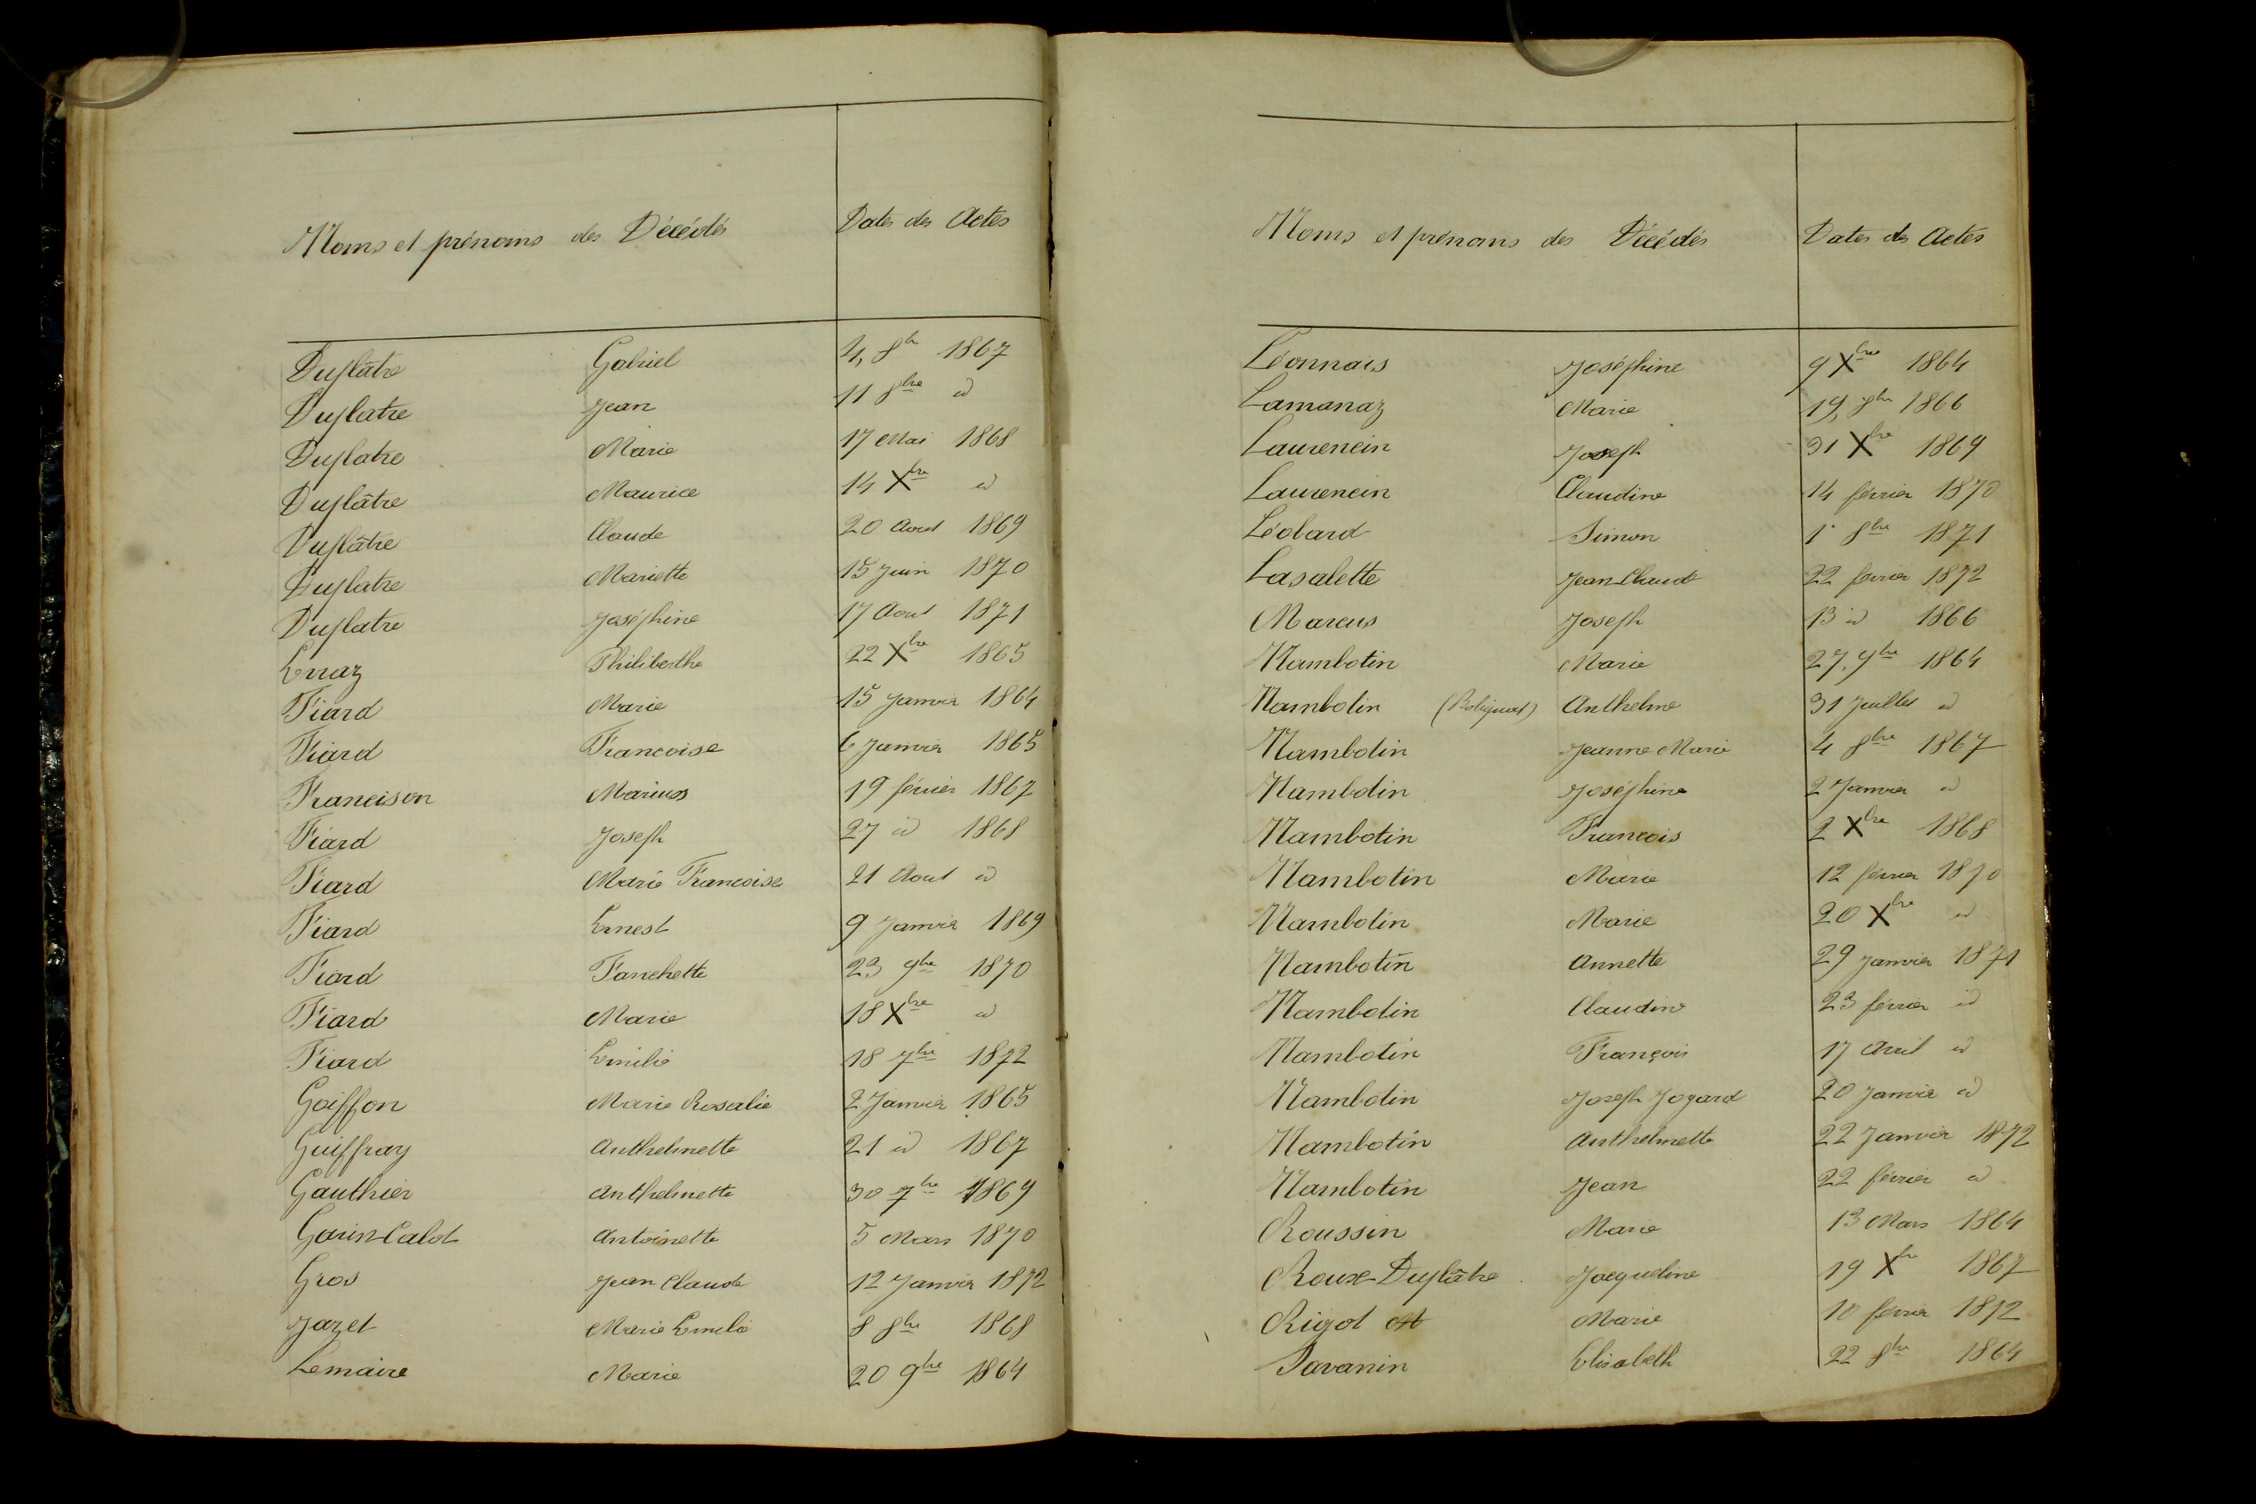 Noms et prénoms des Décédés Dates des Actes
Duplâtre Gabriel 4, 8bre 1867
Duplatre Jean 11 8bre id
Duplatre Marie 17 Mai 1868
Duplâtre Maurice 14 Xbre id
Duplâtre Claude 20 Aout 1869
Duplatre Mariette 15 Juin 1870
Duplatre Joséphine 17 Aout 1871
Erraz Philiberthe 22 Xbre 1865
Fiard Marie 15 Janvier 1864
Fiard Francoise 6 Janvier 1865
Francison Marius 19 février 1867
Fiard Joseph 27 id 1868
Fiard Marie Francoise 21 Aout id
Fiard Ernest 9 Janvier 1869
Fiard Fanchette 23 9bre 1870
Fiard Marie 18 Xbre id
Fiard Emilie 18 7bre 1872
Goiffon Marie Rosalie 2 Janvier 1865
Guiffray Anthelmette 21 id 1867
Gauthier Anthelmette 30 7bre 1869
Garin-Calot Antoinette 5 Mars 1870
Gros Jean Claude 12 Janvier 1872
Jazet Marie Emelie 8 8bre 1868
Lemaire Marie 20 9bre 1864
Noms et prénoms des Décédés Dates des Actes
Léonnais Joséphine 9 Xbre 1864
Lamanaz Marie 19, 8bre 1866
Laurencin Joseph 31 Xbre 1869
Laurencin Claudine 14 février 1870
Léobard Simon 1er 8bre 1871
Lasalette Jean Claude 22 février 1872
Marcus Joseph 13 id 1866
Nambotin Marie 27, 9bre 1864
Nambotin Anthelme 31 Juillet id
Nambotin Jeanne Marie 4 8bre 1867
Nambotin Joséphine 2 Janvier id
Nambotin Francois 2 Xbre 1868
Nambotin Marie 12 février 1870
Nambotin Marie 20 Xbre id
Nambotin Annette 29 Janvier 1871
Nambotin Claudine 23 février id
Nambotin François 17 Avril id
Nambotin Joseph Jogard 20 Janvier id
Nambotin Anthelmette 22 Janvier 1872
Nambotin Jean 22 février id
Roussin Marie 13 Mars 1864
Roux-Duplâtre Jacqueline 19 Xbre 1867
Rigot Marie 10 février 1872
Savanin Elisabeth 22 8bre 1864